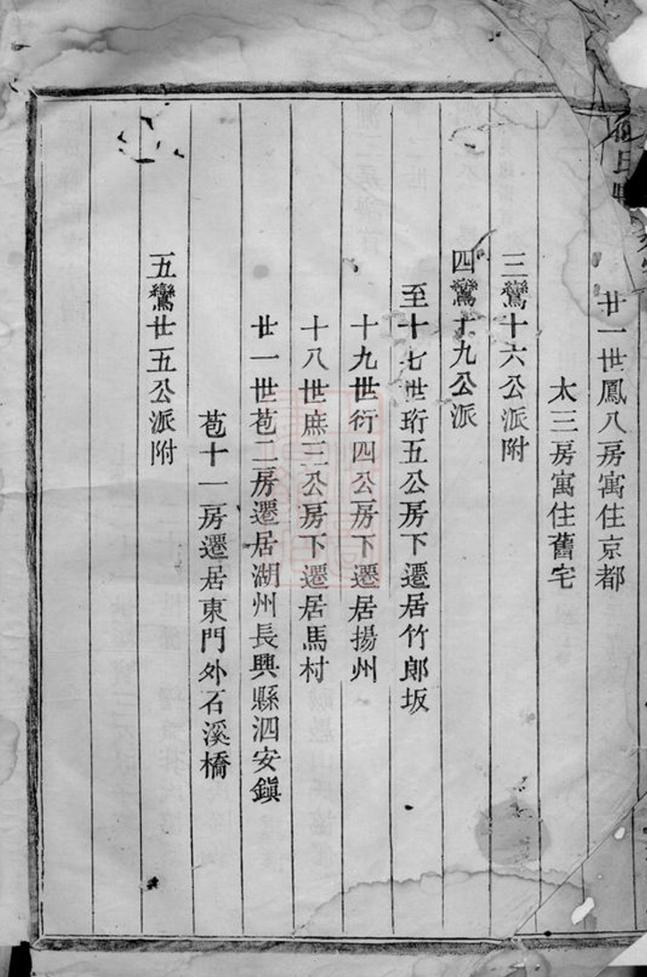 氏
廿一世鳳八房寓住京都
太三房寓住舊宅
三鸞十六公派附
四鸞十九公派
至十七世珩五公房下遷居竹郎坂
十九世衍四公房下遷居揚州
十八世庶三公房下遷居馬村
廿一世苞二房遷居湖州長興縣泗安鎭
苞十一房遷居東門外石溪橋
五鸞廿五公派附